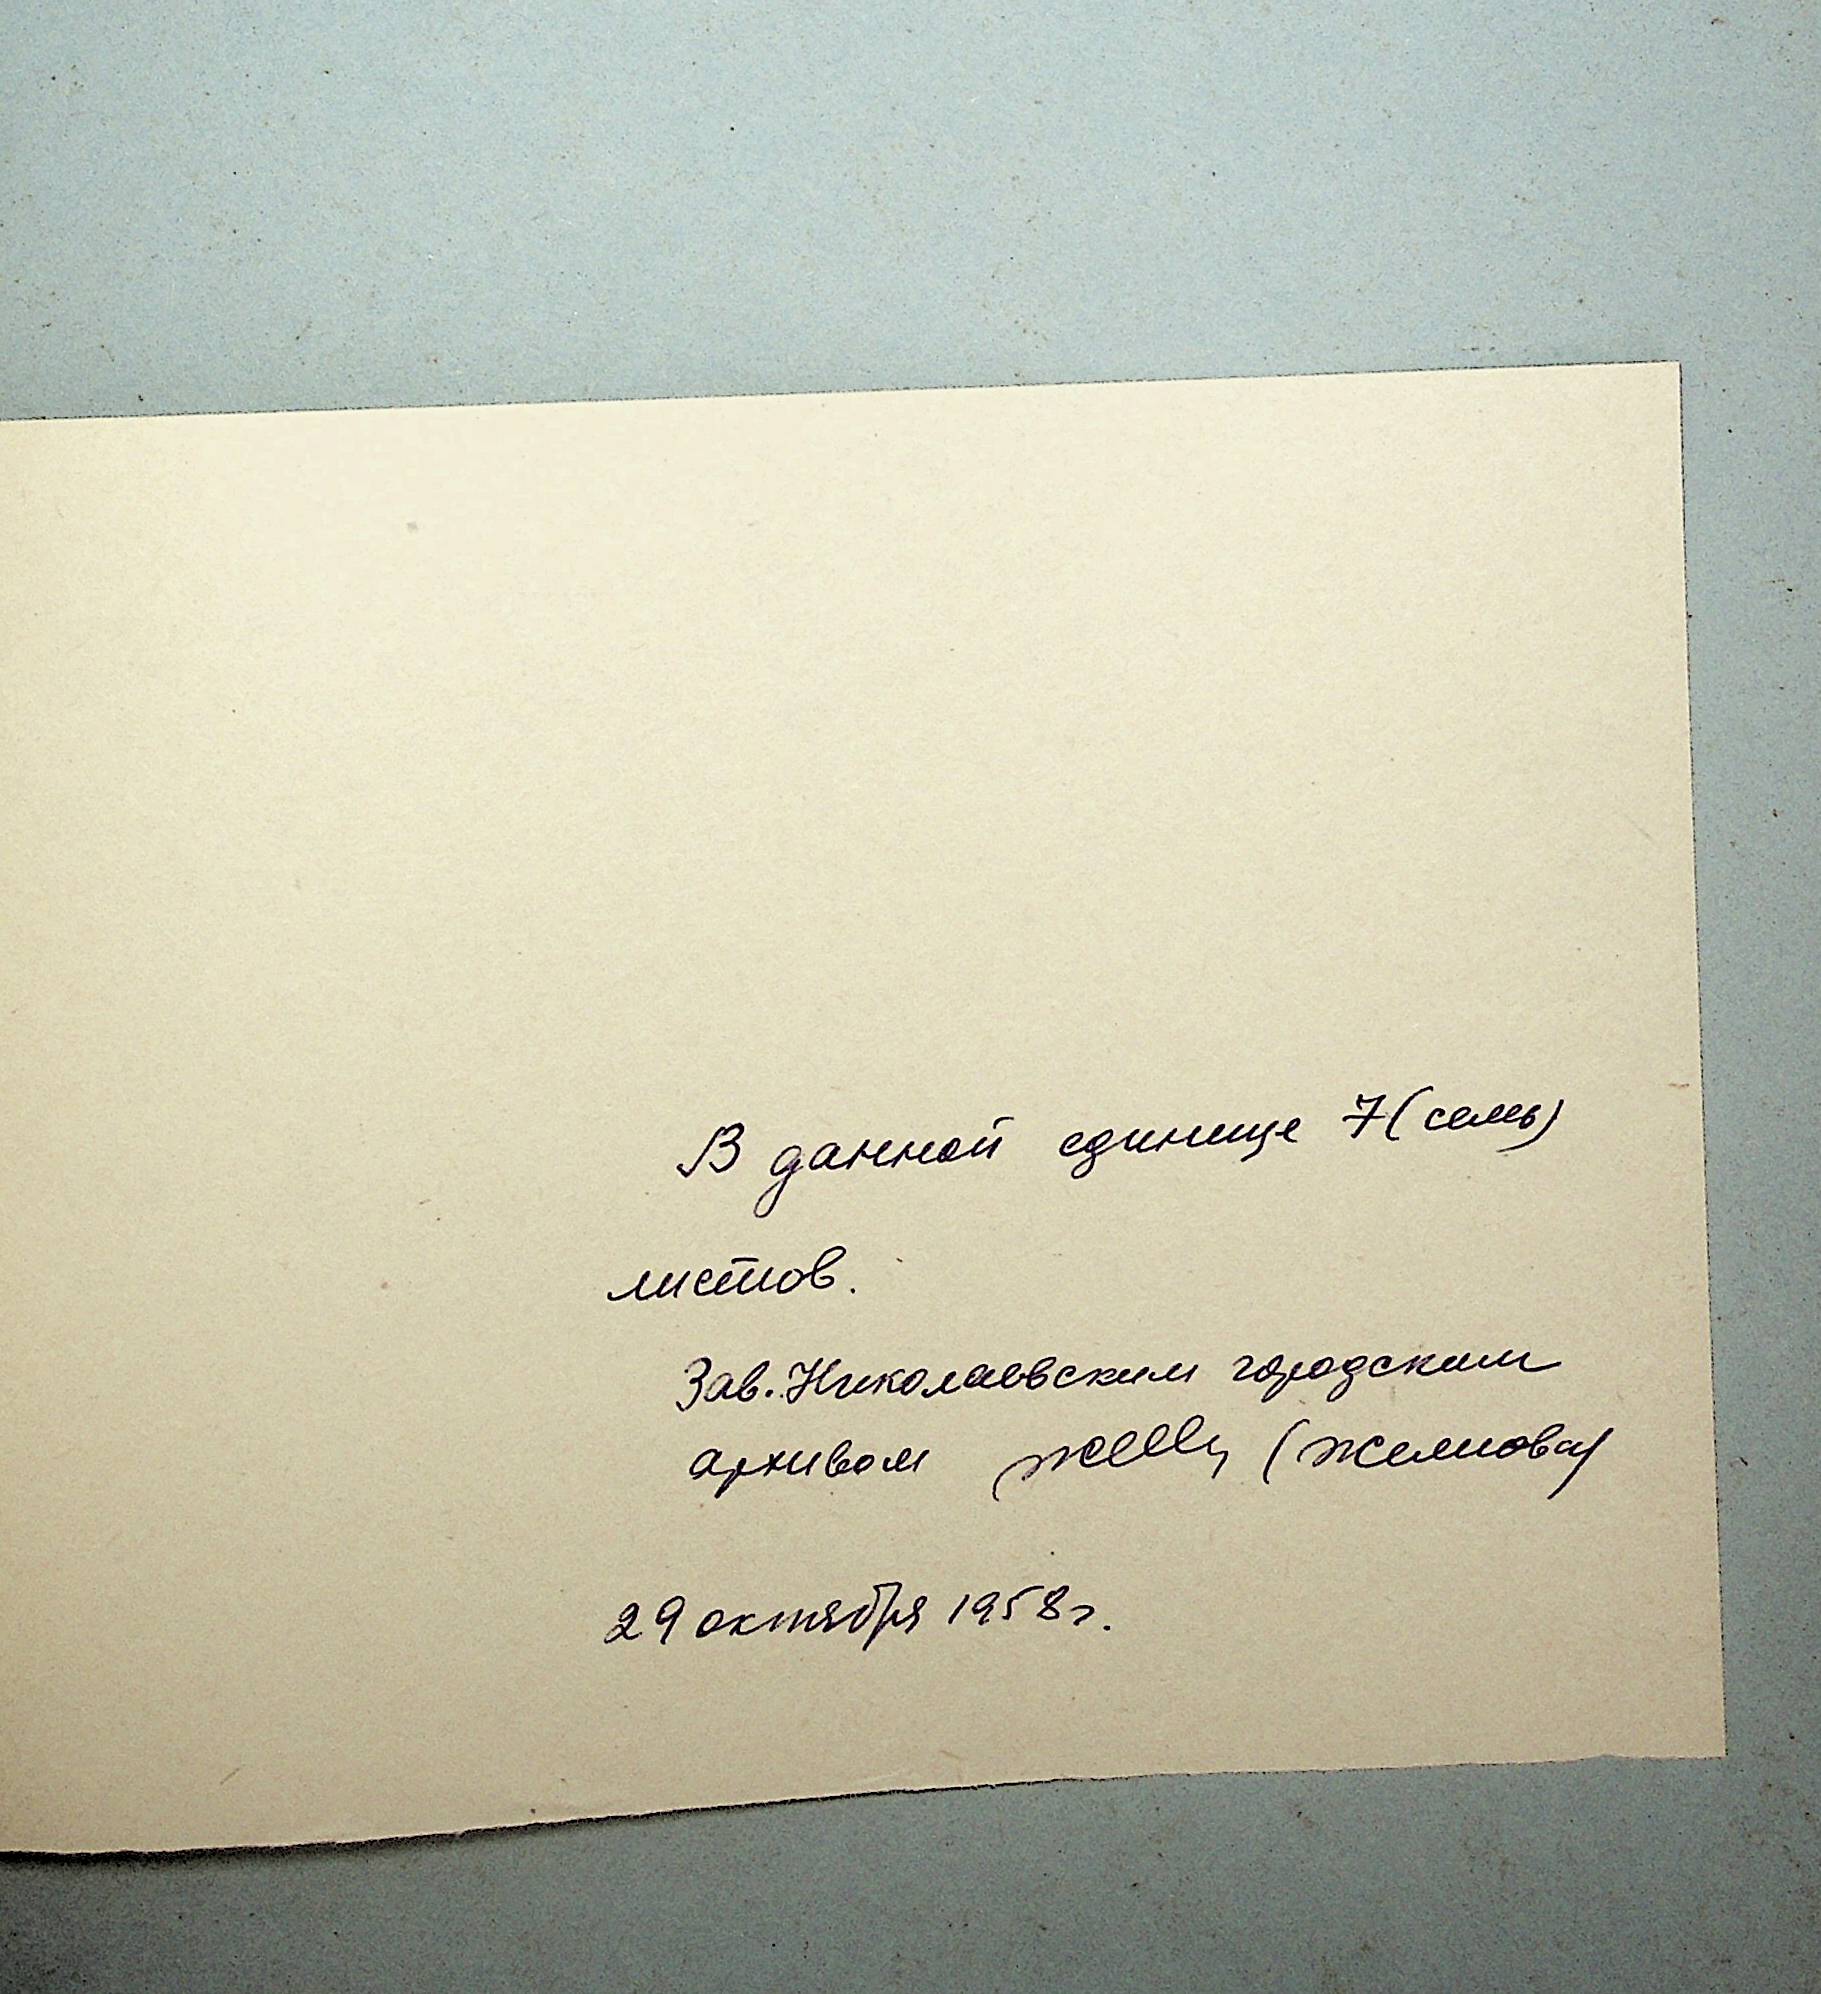 В данной единице 7 (семь)
листов.
Зав. Николаевским городским
архивом
29 октября 1958 г.